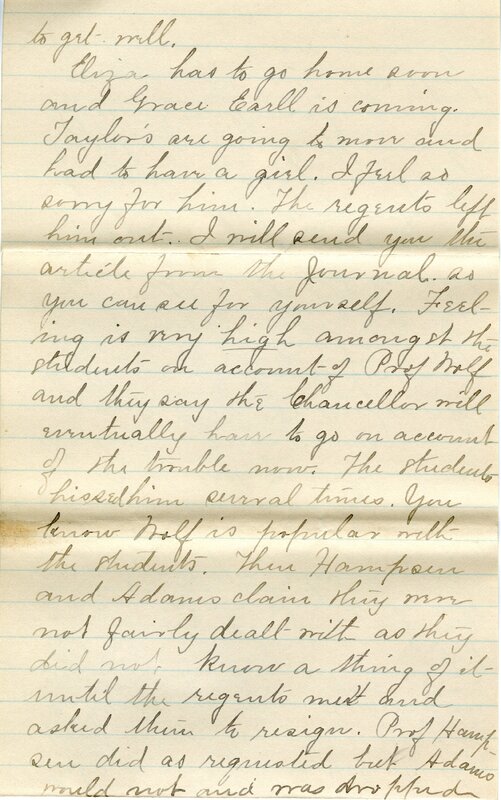 to get well.
Eliza has to go home soon
and Grace Earll is coming.
Taylor's are going to move and
had to have a girl. I feel so
sorry for him. The regents left
him out. I will send you the
article from the Journal. so
you can see for yourself. Feel-
ing is very high amongst the
students on account of Prof Wolf
and they say the Chancellor will
eventually have to go on account
of the trouble now. The students
hissed him several times. You
know Wolf is popular with
the students. Then Hampsen
and Adams claim they were
not fairly dealt with as they
did not know a thing of it
until the regents met and
asked them to resign. Prof Hamp
sen did as requested but Adams
would not and was dropped